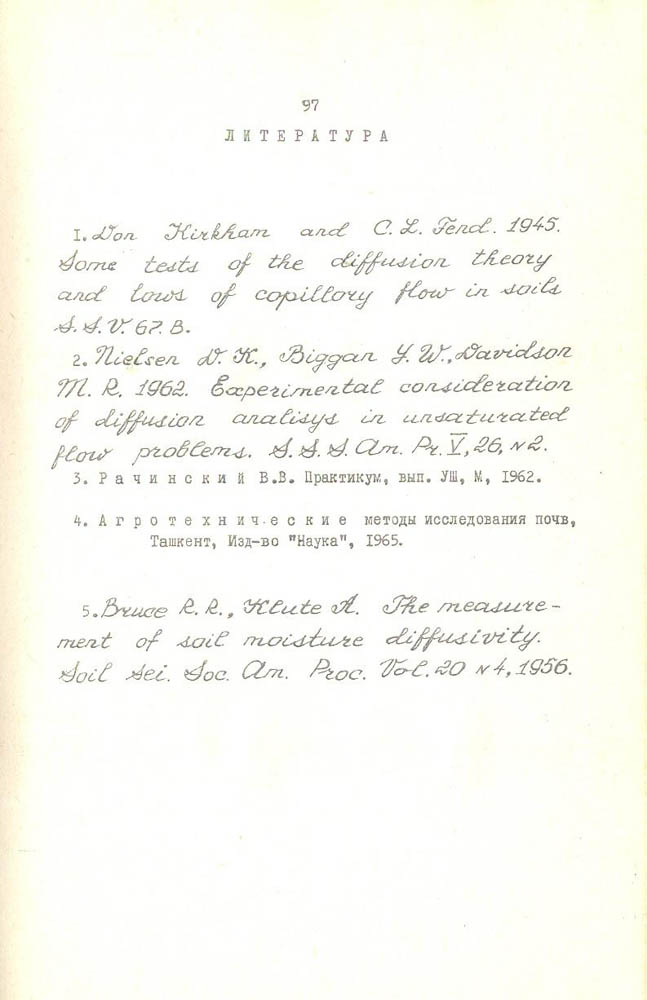 97
ЛИТЕРАТУРА
1. Don Kirkham and C. L. Fend. 1945.
Some tests of the diffusion theory
and lows of copillory flow in soils
S. S. V. 67. B.
2. Nielsen D. K., Biggan Y. W., Davidson
M. R. 1962. Experimental consideration
of diffusion analisys in unsaturated
flow problems. S. S. S. Am. Pr. V, 26, N2.
3. Рачинский В.В. Практикум, вып. УШ, М, 1962.
4. Агротехнические методы исследования почв,
Ташкент, Изд-во "Наука", 1965.
5. Bruce R. R., Klute A. The measure-
ment of soil moisture diffusivity.
Soil sei. Soc. Am. Proc. Vol. 20 N4, 1956.